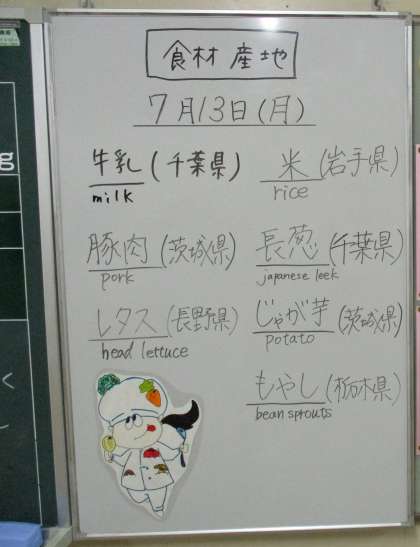 食材 産地
7月13日(月)
牛乳(千葉県) 米(岩手県)
milk rice
豚肉(茨城県) 長葱(千葉県)
pork japanese leek
レタス(長野県) じゃが芋(茨城県)
head lettuce potato
もやし(栃木県)
bean sprouts
g
く